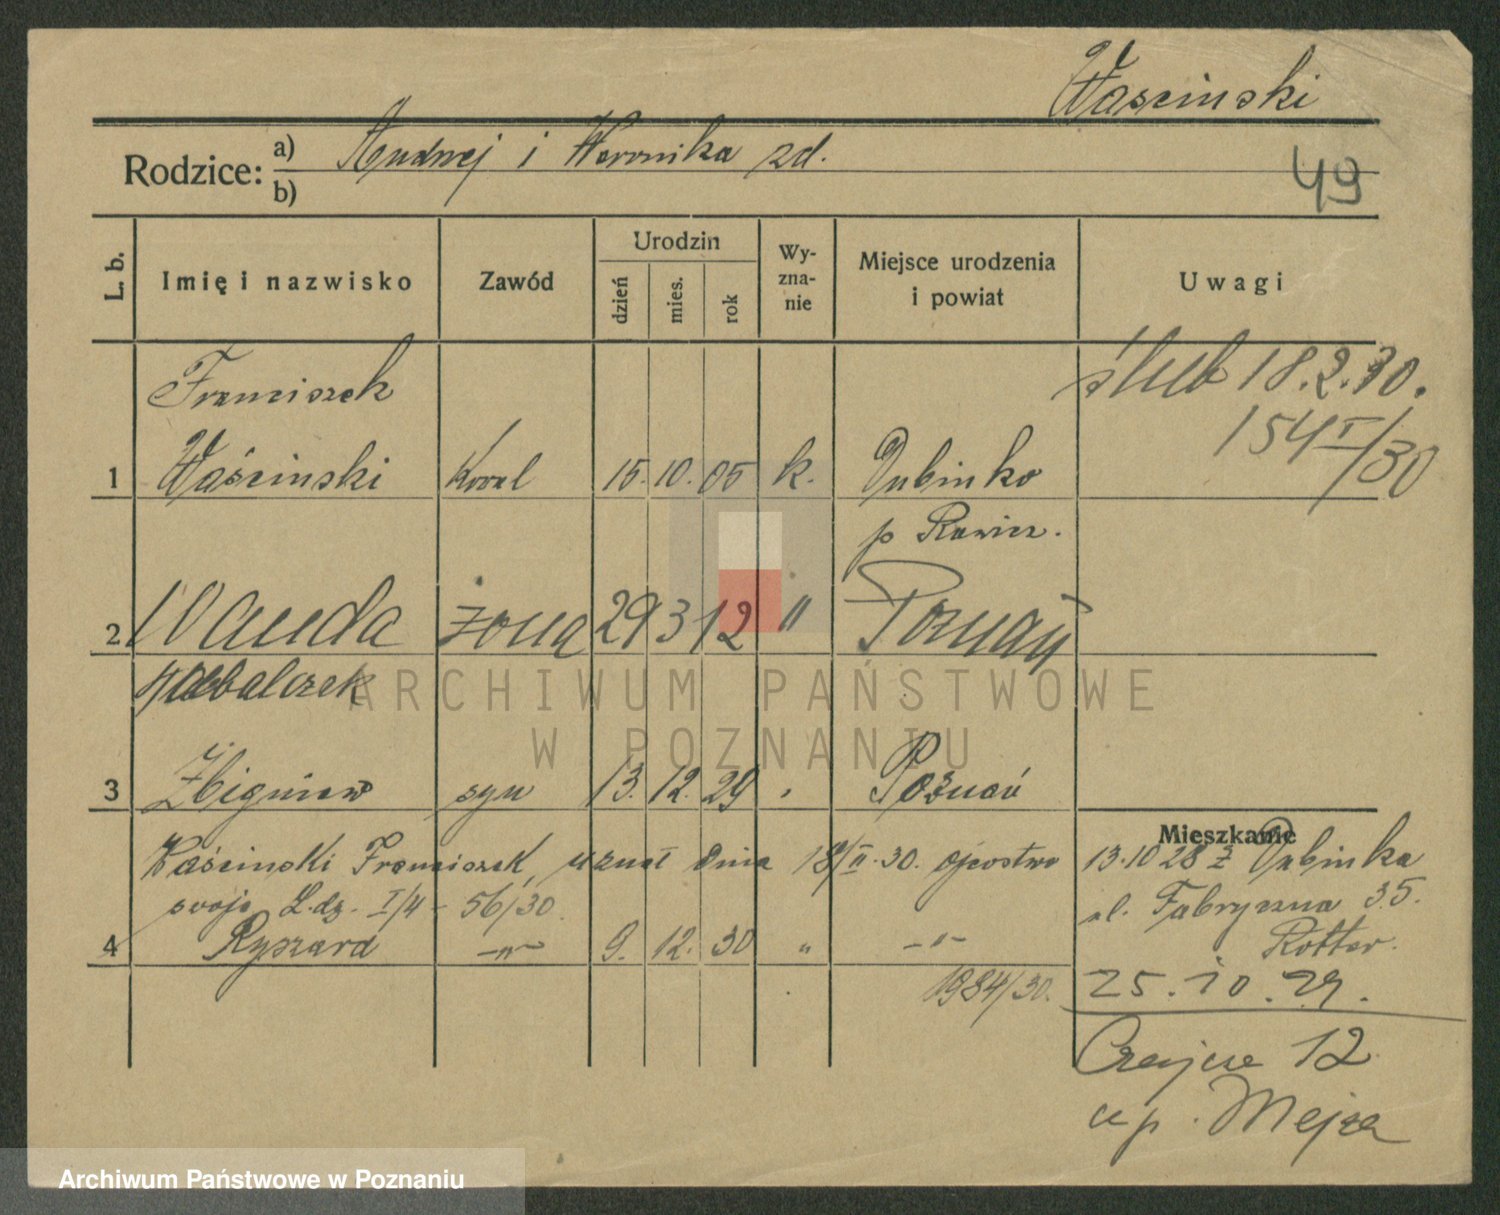 Wascinski
Rodzice: a) Andrzej i Weronika zd.
b)
49
L. b. Imię i nazwisko Zawód Urodzin dzień mies. rok Wy-zna-nie Miejsce urodzenia i powiat Uwagi
Franciszek ślub 18.2.30.
154 I/30
1 Waścinski Kowal 15. 10. 05 k. Dubinko
p Rawicz.
2 Wanda żona 29 3 12 " Poznań
3 Zbigniew syn 13. 12. 29 " Poznań
Mieszkanie
Waścinski Franciszek, uznał dnia 18/II.30. ojcostwo
swoje L.dz. I/4 - 56/30
4 Ryszard -"- 9. 12. 30 " -"-
1984/30.
13.10 28 z Dubinka
ul. Fabryczna 35.
Rotter.
25.10.29.
12
up.
ARCHIWUM PAŃSTWOWE
W POZNANIU
Archiwum Państwowe w Poznaniu